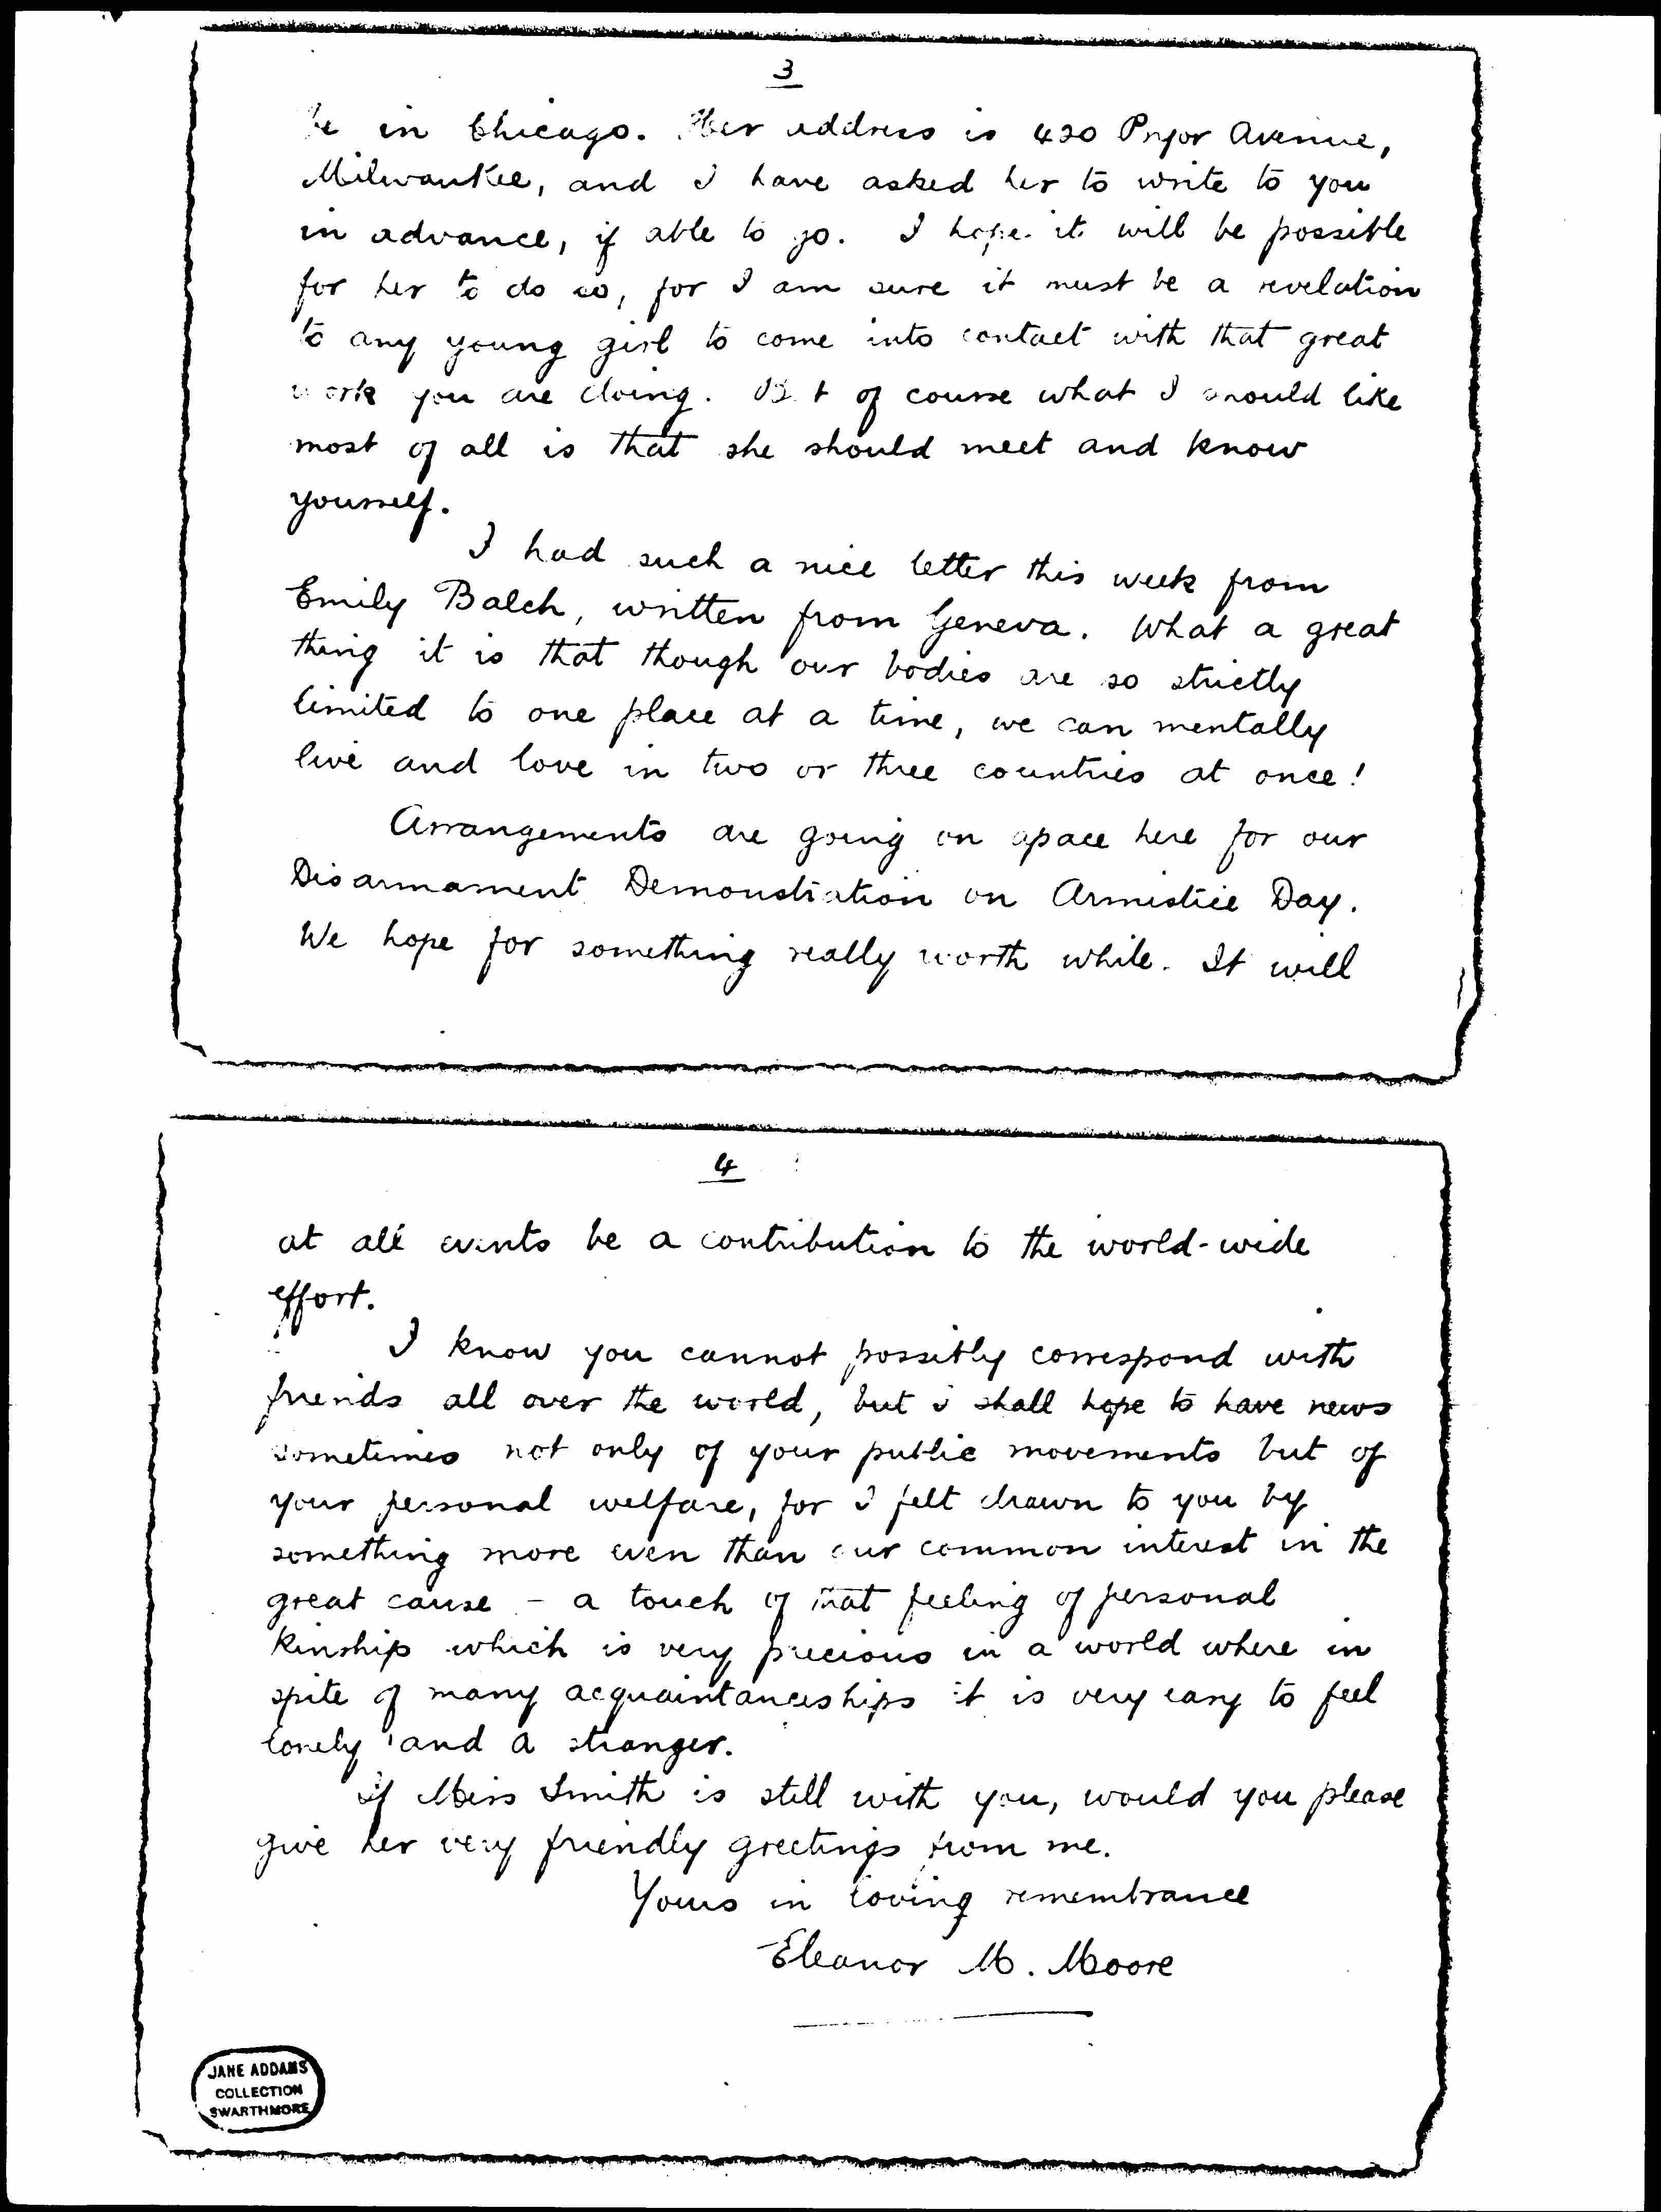 3
be in Chicago. Her address is 420 Pryor Avenue,
Milwaukee, and I have asked her to write to you
in advance, if able to go. I hope it will be possible
for her to do so, for I am sure it must be a revelation
to any young girl to come into contact with that great
work you are doing. But of course what I should like
most of all is that she should meet and know
yourself.
I had such a nice letter this week from
Emily Balch, written from Geneva. What a great
thing it is that though our bodies are so strictly
limited to one place at a time, we can mentally
live and love in two or three countries at once!
Arrangements are going on apace here for our
Disarmament Demonstration on Armistice Day.
We hope for something really worth while. It will
4
at all events be a contribution to the world-wide
effort.
I know you cannot possibly correspond with
friends all over the world, but I shall hope to have news
sometimes not only of your public movements but of
your personal welfare, for I felt drawn to you by
something more even than our common interest in the
great cause - a touch of that feeling of personal
kinship which is very precious in a world where in
spite of many acquaintanceships it is very easy to feel
lonely and a stranger.
If Miss Smith is still with you, would you please
give her very friendly greetings from me.
Yours in loving remembrance
Eleanor M. Moore
JANE ADDAMS
COLLECTION
SWARTHMORE